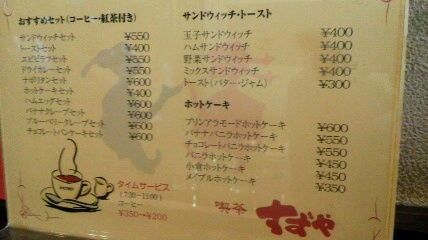 おすすめセット(コーヒー・紅茶付き)
サンドウィッチセット ¥550
トーストセット ¥400
エビピラフセット ¥550
ドライカレーセット ¥550
ナポリタンセット ¥600
ホットケーキセット ¥400
ハムエッグセット ¥600
バナナクレープセット ¥600
ブルーベリークレープセット ¥600
チョコレートパンケーキセット ¥600
タイムサービス
(7:30~11:00)
コーヒー
¥350→¥200
サンドウィッチ・トースト
玉子サンドウィッチ ¥400
ハムサンドウィッチ ¥400
野菜サンドウィッチ ¥400
ミックスサンドウィッチ ¥400
トースト(バター・ジャム) ¥300
ホットケーキ
プリンアラモードホットケーキ ¥600
バナナバニラホットケーキ ¥550
チョコレートバニラホットケーキ ¥550
バニラホットケーキ ¥450
小倉ホットケーキ ¥450
メイプルホットケーキ ¥350
喫茶